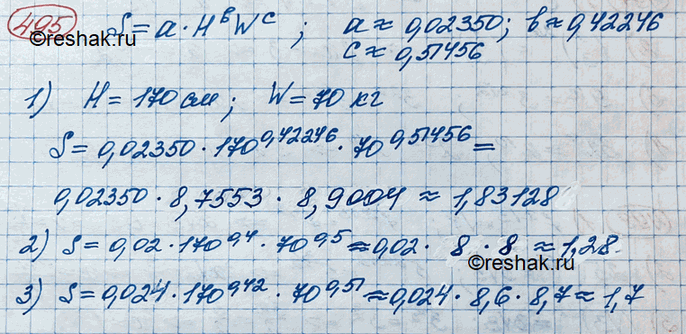 495 S = a · H^b W^c ; a ≈ 0,02350; b ≈ 0,42246
©reshak.ru c ≈ 0,51456
1) H = 170 см ; W = 70 кг
S = 0,02350 · 170^0,42246 · 70^0,51456 =
0,02350 · 8,7553 · 8,9004 ≈ 1,83128
2) S = 0,02 · 170^0,4 · 70^0,5 ≈ 0,02 · 8 · 8 ≈ 1,28
©reshak.ru
3) S = 0,024 · 170^0,42 · 70^0,51 ≈ 0,024 · 8,6 · 8,7 ≈ 1,7